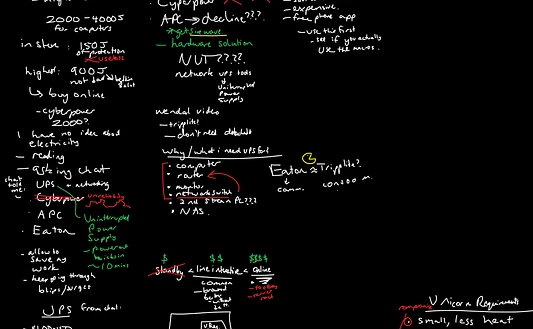 2000-4000J
for computers
in store: 150J
of protection
useless
highest: 900J
↳ buy online
- cyberpower
2000?
I have no idea about
electricity
- reading
- asking chat
chat
told
me:
UPS → networking
Cyberpower
unreliable
APC
Eaton
Uninterrupted
Power
Supply
- power out
~10 mins
- allow to
save my
work
- keep going through
UPS from chat:
Cyberpower
APC → decline???
*get sinewave
- hardware solution
NUT????
network ups tools
Uninterrupted
Power
Supply
wendal video
- tripplite!
- don't need
why/what i need UPS for?
• computer
• router
• monitor
• network switch
• 2nd stream PC???
• NAS.
$ $$ $$$$
standby < line interactive < online
common
- expensive.
- free phone app
- use this first
- see if you actually
use the
Eaton ≈ Tripplite?
comm.
Unicorn Requirements
small, less heat